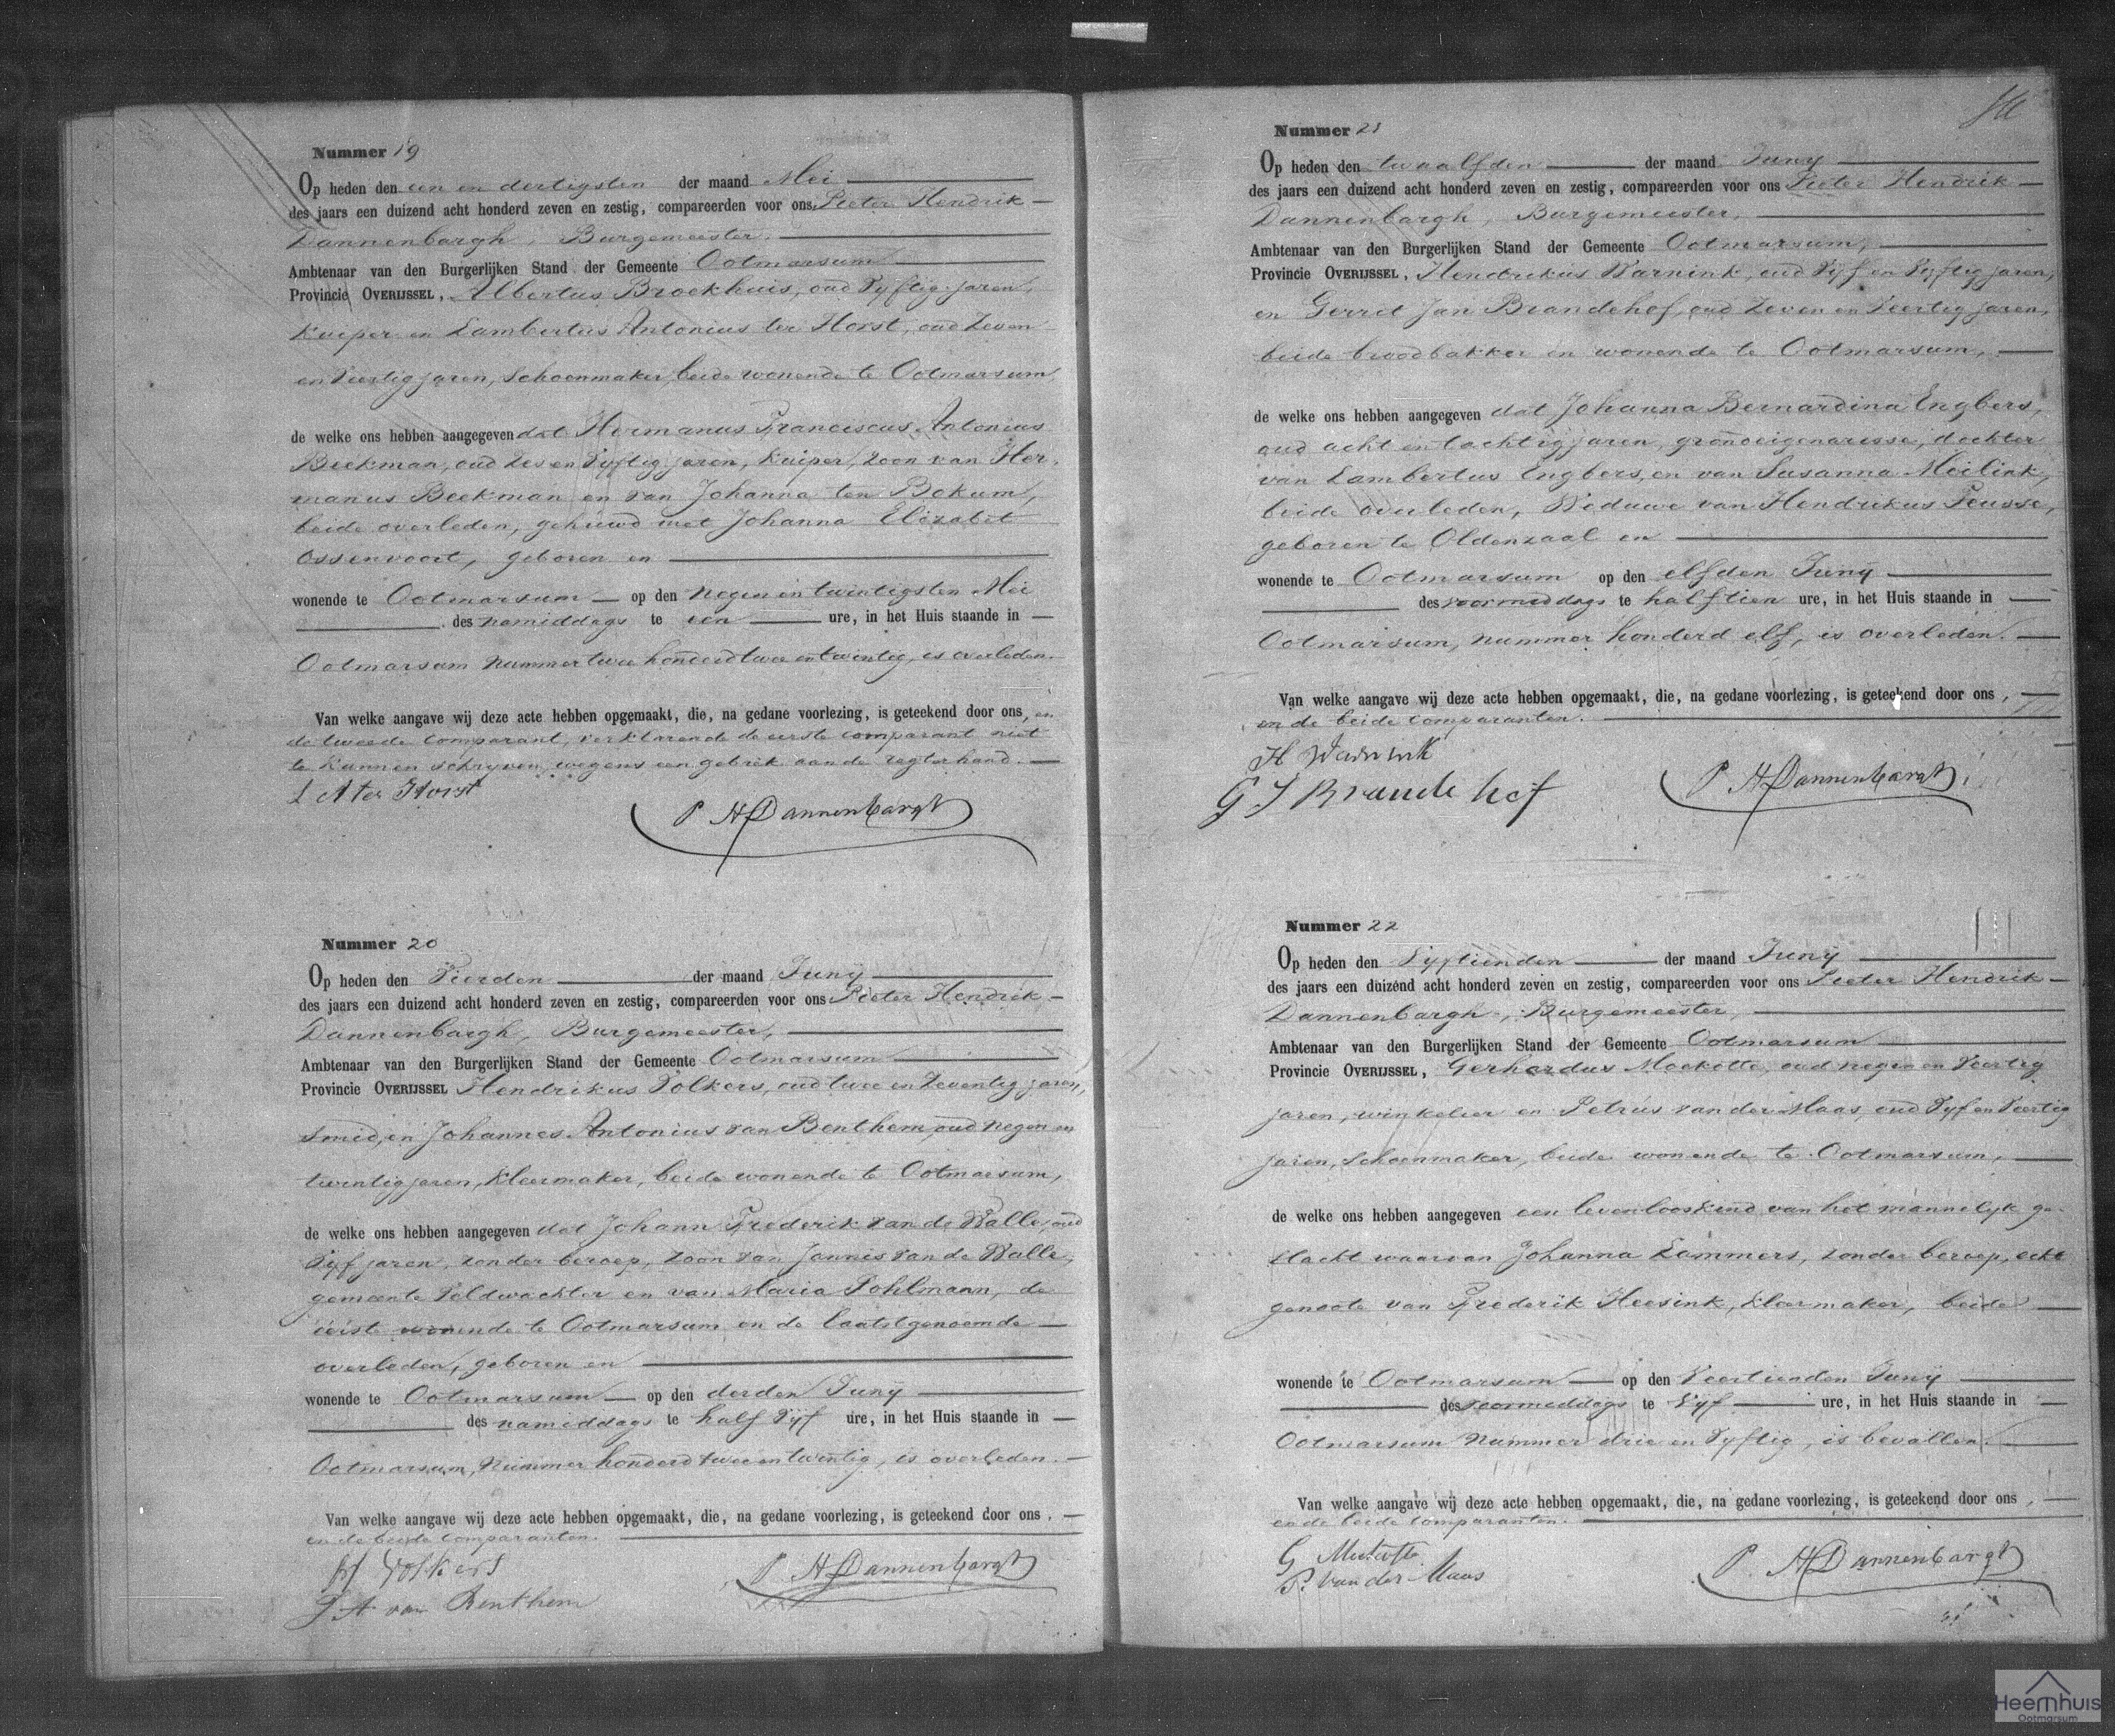 Nummer 19
Op heden den een en dertigsten der maand Mei
des jaars een duizend acht honderd zeven en zestig, compareerden voor ons Pieter Hendrik
Dannenbargh, Burgemeester,
Ambtenaar van den Burgerlijken Stand der Gemeente Ootmarsum
Provincie OVERIJSSEL, Albertus Broekhuis, oud Vyftig jaren,
Kuiper en Lambertus Antonius ter Horst, oud Zeven
en Veertig jaren, Schoenmaker, beide wonende te Ootmarsum,
de welke ons hebben aangegeven dat Hermanus Franciscus Antonius
Beekman, oud Zes en Vyftig jaren, Kuiper, zoon van Her-
manus Beekman en van Johanna ten Bokum,
beide overleden, gehuwd met Johanna Elizabet
Ossenvoort, geboren en
wonende te Ootmarsum op den negen en twintigsten Mei
des namiddags te een ure, in het Huis staande in
Ootmarsum nummer twee honderd twee en twintig, is overleden.
Van welke aangave wij deze acte hebben opgemaakt, die, na gedane voorlezing, is geteekend door ons, en
de tweede comparant, verklarende de eerste comparant niet
te kunnen schryven, wegens een gebrek aan de regterhand.
L A ter Horst
P H Dannenbargh
Nummer 20
Op heden den Vierden der maand Juny
des jaars een duizend acht honderd zeven en zestig, compareerden voor ons Pieter Hendrik
Dannenbargh, Burgemeester,
Ambtenaar van den Burgerlijken Stand der Gemeente Ootmarsum
Provincie OVERIJSSEL Hendrikus Volkers, oud twee en Zeventig jaren,
Smid, en Johannes Antonius van Benthem, oud negen en
twintig jaren, Kleermaker, beide wonende te Ootmarsum,
de welke ons hebben aangegeven dat Johann Frederik van de Walle, oud
Vyf jaren, zonder beroep, zoon van Jannes van de Walle,
gemeente Veldwachter en van Maria Pohlmann, de
eerste wonende te Ootmarsum en de laatstgenoemde
overleden, geboren en
wonende te Ootmarsum op den derden Juny
des namiddags te half Vyf ure, in het Huis staande in
Ootmarsum, nummer honderd twee en twintig, is overleden.
Van welke aangave wij deze acte hebben opgemaakt, die, na gedane voorlezing, is geteekend door ons,
en de beide comparanten.
H Volkers
J A van Benthem
P H Dannenbargh
Nummer 21
Op heden den twaalfden der maand Juny
des jaars een duizend acht honderd zeven en zestig, compareerden voor ons Pieter Hendrik
Dannenbargh, Burgemeester,
Ambtenaar van den Burgerlijken Stand der Gemeente Ootmarsum,
Provincie OVERIJSSEL, Hendrikus Warnink, oud Vyf en Vyftig jaren,
en Gerrit Jan Brandehof, oud Zeven en Veertig jaren,
beide broodbakker en wonende te Ootmarsum,
de welke ons hebben aangegeven dat Johanna Bernardina Engbers,
oud acht en tachtig jaren, grondeigenaresse, dochter
van Lambertus Engbers, en van Susanna Meilink,
beide overleden, Weduwe van Hendrikus Peusse,
geboren te Oldenzaal en
wonende te Ootmarsum op den elfden Juny
des voormiddags te half tien ure, in het Huis staande in
Ootmarsum, nummer honderd elf, is overleden.
Van welke aangave wij deze acte hebben opgemaakt, die, na gedane voorlezing, is geteekend door ons,
en de beide comparanten.
H Warnink
G J Brandehof
P H Dannenbargh
Nummer 22
Op heden den Vyftienden der maand Juny
des jaars een duizend acht honderd zeven en zestig, compareerden voor ons Pieter Hendrik
Dannenbargh, Burgemeester,
Ambtenaar van den Burgerlijken Stand der Gemeente Ootmarsum
Provincie OVERIJSSEL, Gerhardus Mockotte, oud negen en Veertig
jaren, winkelier en Petrus van der Maas, oud Vyf en Veertig
jaren, Schoenmaker, beide wonende te Ootmarsum,
de welke ons hebben aangegeven een levenloos kind van het mannelyk ge-
slacht waarvan Johanna Lammers, zonder beroep, echt
genoote van Frederik Heesink, Kleermaker, beide
wonende te Ootmarsum op den Veertienden Juny
des voormiddags te Vyf ure, in het Huis staande in
Ootmarsum nummer drie en Vyftig, is bevallen.
Van welke aangave wij deze acte hebben opgemaakt, die, na gedane voorlezing, is geteekend door ons,
en de beide comparanten.
G
P. van der Maas
P H Dannenbargh
Heemhuis
Ootmarsum